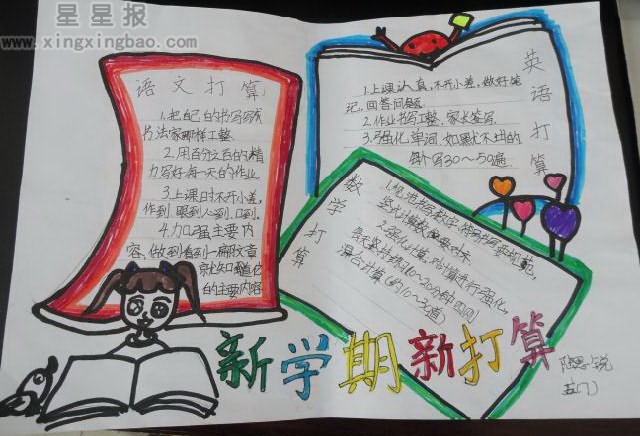 星星报
www.xingxingbao.com
语文打算
1.把自己的书写写成
书法家那样工整
2.用百分之百的精
力写好每一天的作业
3.上课时不开小差,
作到眼到、心到、口到。
4.加强主要内
容,做到看到一篇文章
就知道它
的主要内容
英语打算
1.上课认真,不开小差,做好笔
记,回答问题
2.作业书写工整,家长签写
3.强化单词,如果不对的
每个写30~50遍
数学打算
1.规范书写数字,
2.强化计算,对计算进行强化,
每天坚持练10~20分钟
混合计算(约10~30道)
新学期新打算